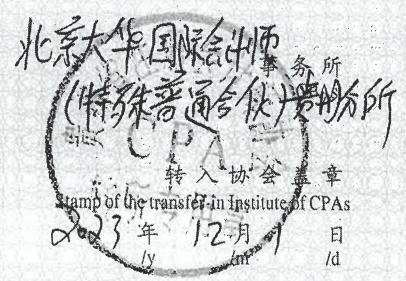 北京大华国际会计师
事务所
(特殊普通合伙)贵州分所
CPA
转入协会盖章
Stamp of the transfer-in Institute of CPAs
2023 年 12 月 1 日
/y /m /d